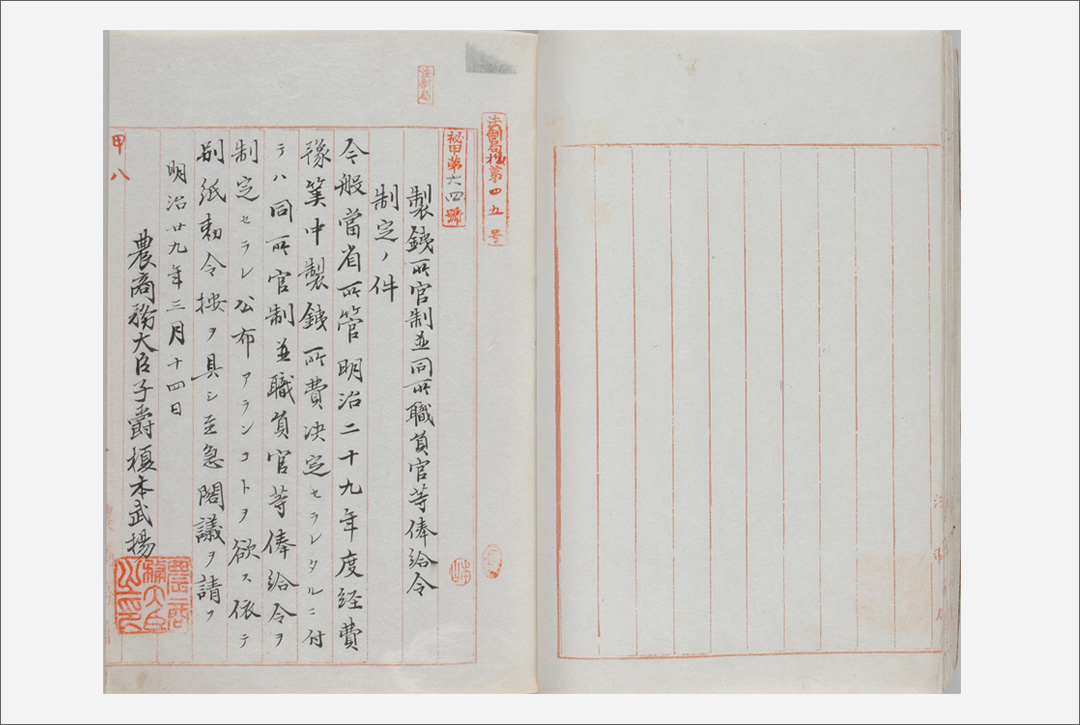 法制局
法制局秘第四五号
秘甲第六四號
製鉄所官制並同所職員官等俸給令
制定ノ件
今般當省所管明治二十九年度経費
豫筭中製鉄所費决定セラレタルニ付
テハ同所官制並職員官等俸給令ヲ
制定セラレ公布アランコトヲ欲ス依テ
別紙勅令按ヲ具シ至急閣議ヲ請フ
明治廿九年三月十四日
農商務大臣子爵榎本武揚
農商務大臣之印
甲八